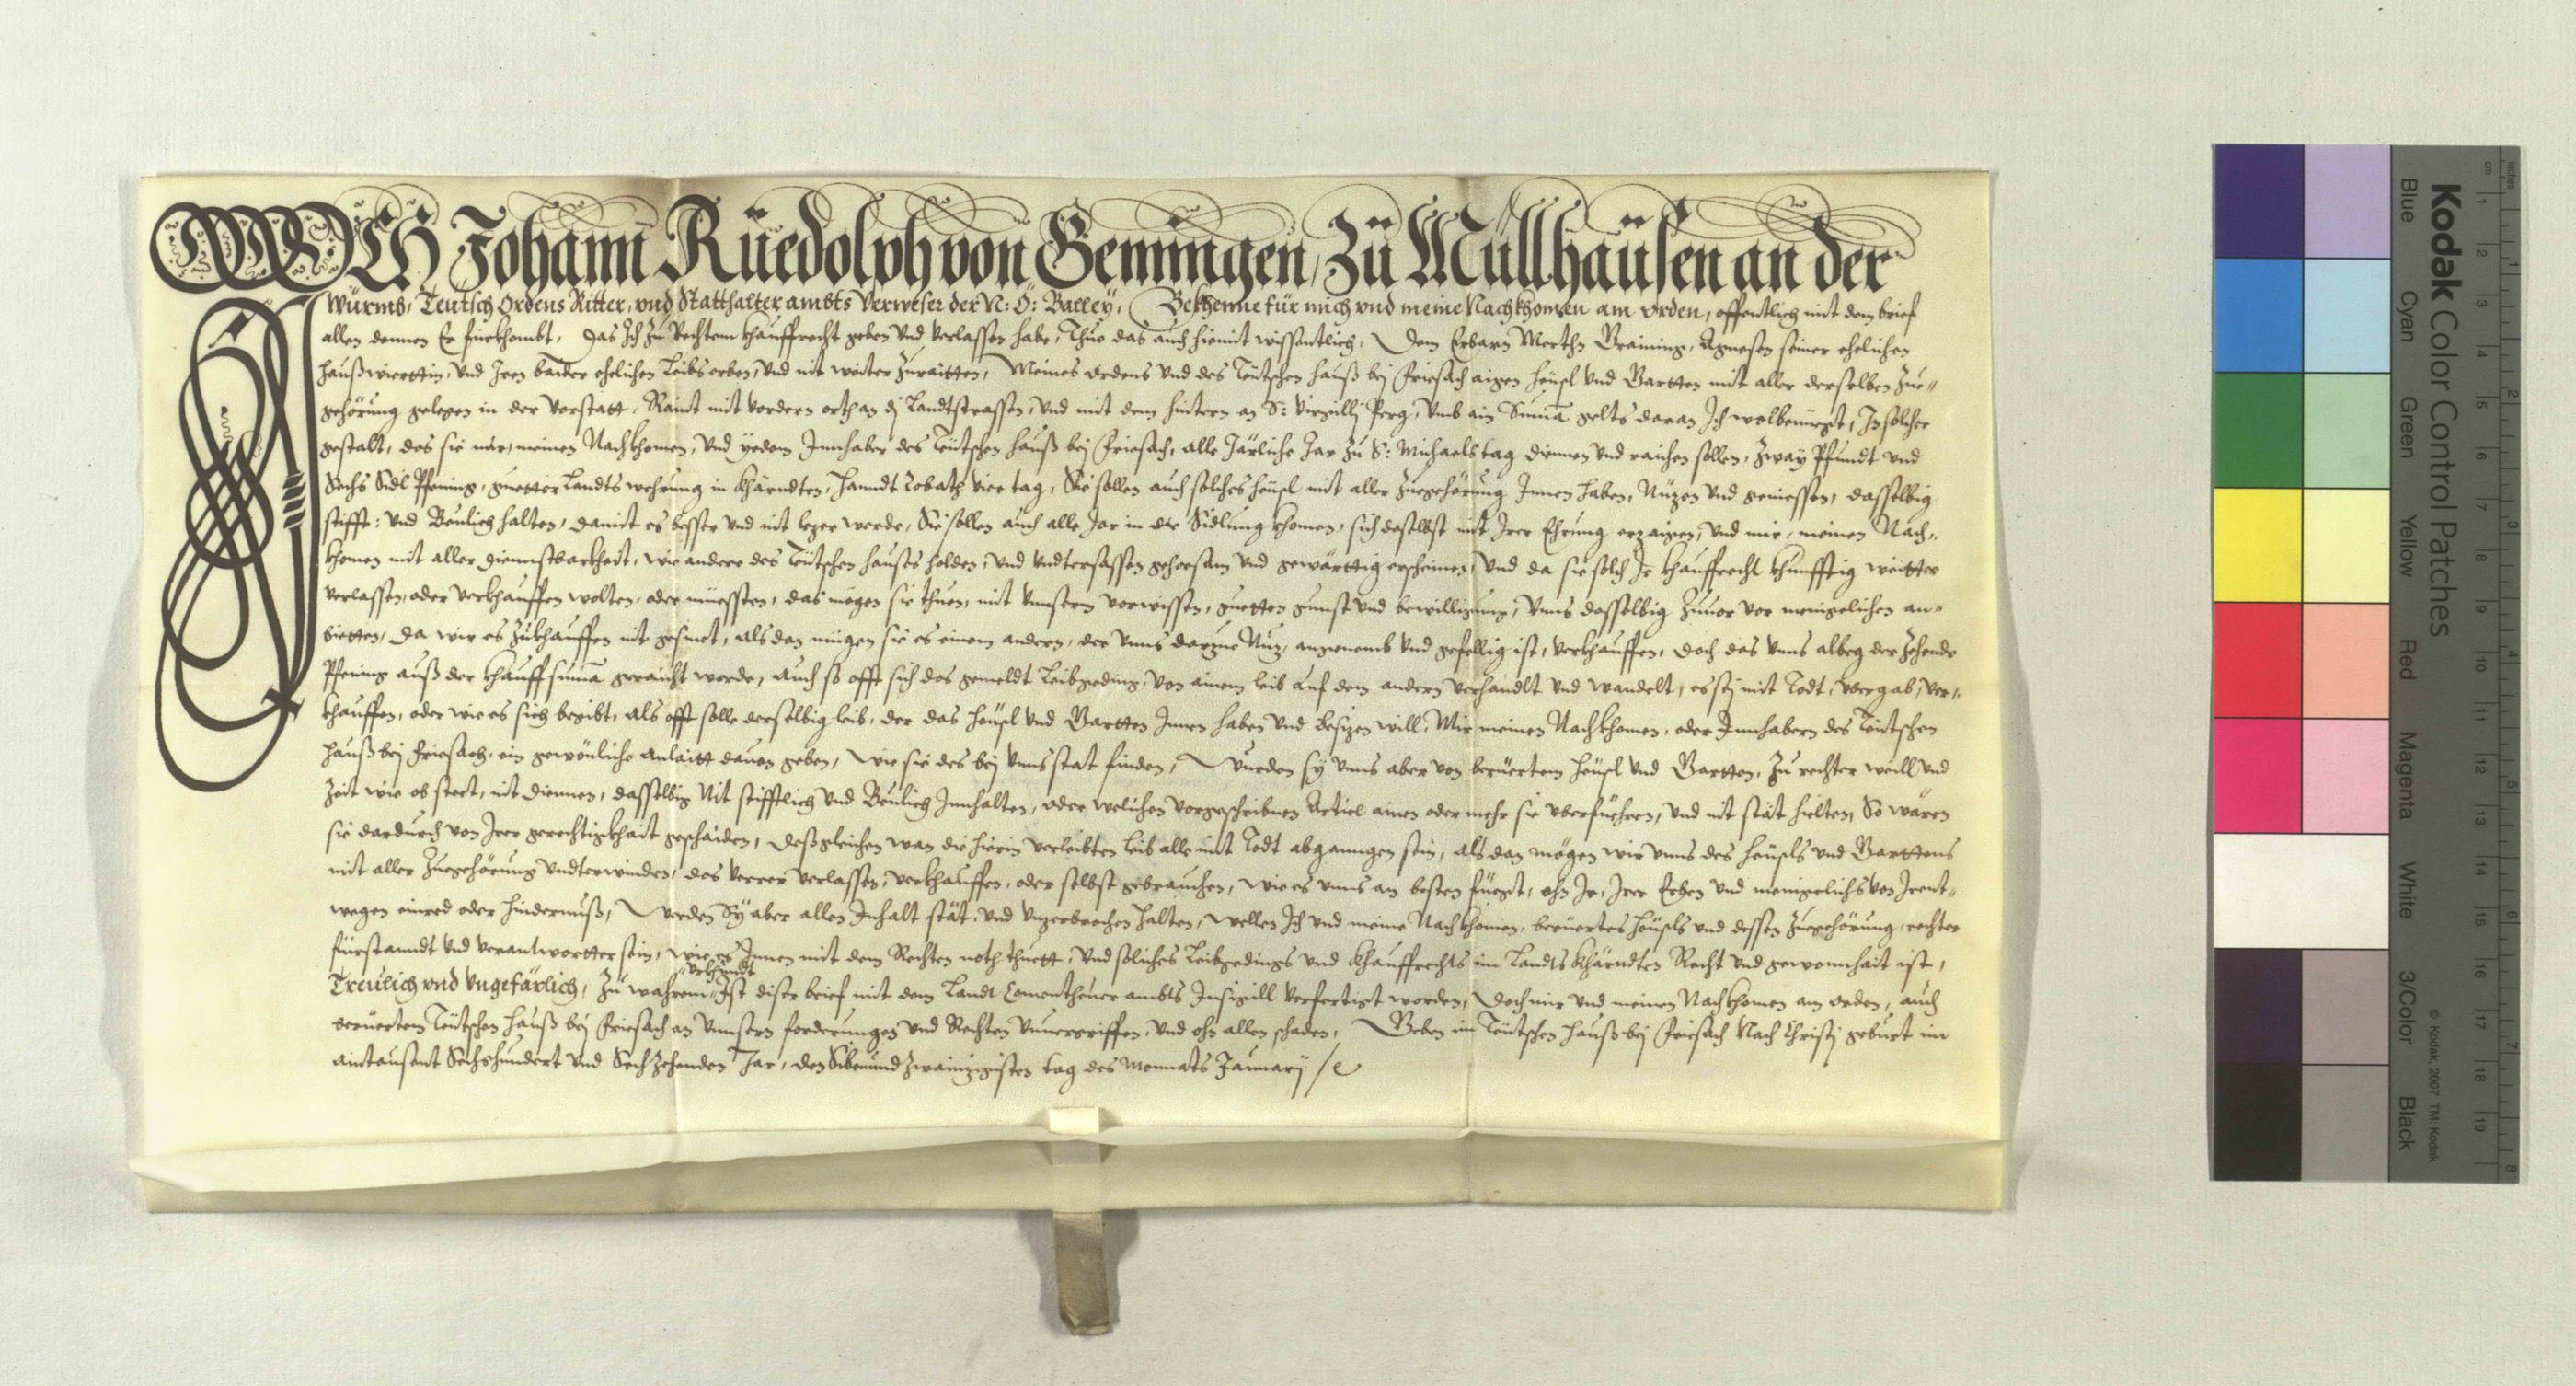 ICH Johann Rüedolph von Gemingen, Zü Müllhaüsen an der
Würmb, Teutsch Ordens Ritter, vnd Statthalter ambts Verweser der N: Ö: Balley, Bekhenne für mich vnd meine Nachkhomen am Orden, offentlich mit dem brief
allen dennen Er fürkhombt, Das Ich zu Rechtem khauffrecht geben vnd verlassen habe, Thue das auch hiemit wissentlich, Dem Erbarn Merthn Graining, Agnesen seiner ehelichen
haußwierttin, vnd Iren baider ehelichen Leibs erben, vnd nit weiter zuraitten, Meines Ordens vnd des Teütschen hauß bej Friesach aigen heüsl vnd Gartten mit aller derselben Zue-
gehörung gelegen in der Vorstatt, Raint mit vordern orth an dj Landtstrassen, vnd mit dem hintern an S: Virgillj Perg, vmb ain Suma gelts daran Ich wolbenüegt, In solcher
gestalt, das sie mir, meinen Nachkhomen, vnd yedem Innhaber des Teütschen hauß bej Friesach, alle Järliche Jar zu S: Michaels tag diennen vnd raichen sollen, Zway Pfundt vnd
Sechs Pfening, guetter Landts wehrung in Khärndten, Robath vier tag, Sie sollen auch solches heüsl mit aller Zuegehörung Innen haben, Nüzen vnd geniessen, dasselbig
stifft: vnd Beulich halten, damit es besser vnd nit erger werde, Sie sollen auch alle Jar in die Stifftung khomen, sich daselbst mit Irer Ehrung erzaigen, vnd mir, meinen Nach-
khomen mit aller Dienstbarkheit, wie andere des Teütschen hauses holden, vnd vndtersassen gehorsam vnd gewärttig erscheinen, Vnd da sie solch Ir khauffrecht khunfftig weitter
verlassen, oder verkhauffen wolten, oder müessten, das mögen sie thuen, mit vnnserm vorwissen, guetten gunst vnd bewilligung, Vnns dasselbig zuuor vor menigelichen an-
bietten, Da wir es zukhauffen nit gesinet, alsdan mügen sie es einem andern, der vnns darzue Nuz, angenemb vnd gefellig ist, verkhauffen, doch das vnns albeg der Zehende
Pfening auß der khauffsuma geraicht werde, auch so offt sich das gemeldt Leibgeding, von ainem leib auf dem andern verhandlt vnd wandelt, es sej mit Todt, vbergab, ver-
khauffen, oder wie es sich begibt, als offt solle derselbig leib, der das heüsl vnd Gartten Innen haben vnd besizen will, Mir meinen Nachkhomen, oder Innhabern des Teütschen
hauß bej Friesach, ein gewönliche anlaitt dauon geben, Wie sie des bej vnns stat finden, Wurden sy vnns aber von berüertem heüsl vnd Gartten, Zu rechter weill vnd
Zeit wie ob steet, nit diennen, dasselbig Nit stifftlich vnd Beulich Innhalten, oder welichen vorgeschribnen Articl ainen oder mehr sie vberfüehren, vnd nit stät hielten, So wären
sie dardurch von Irer gerechtigkhait geschaiden, Deßgleichen wan die hierin verleibten leib alle mit Todt abgangen sein, als dan mögen wir vnns des heüsls vnd Garttens
mit aller Zuegehörung vndterwinden, das verrer verlassen, verkhauffen, oder selbst gebrauchen, wie es vnns am besten füegt, ohn Ir, Irer Erben vnd menigelichs von Irent-
wegen einred oder hindernuß, Werden Sy aber allen Inhalt stät, vnd vnzerbrochen halten, Wellen Ich vnd meine Nachkhomen, berüertes heüsls vnd dessen Zuegehörung, rechter
fürstanndt vnd verantwortter sein, wie es Innen mit dem Rechten noth thuett, Vnd solliches Leibgedings vnd khauffrechts im Landts Khärndten Recht vnd gewonnhait ist,
Treulich vnd Vngefärlich, Zu wahrem Vrkhundt Ist diser brief mit dem Landt Comentheuer ambts Insigill verfertigt worden, Doch mir vnd meinen Nachkhomen am Orden, auch
berüertem Teütschen hauß bej Friesach an vnnsern forderungen vnd Rechten vnuergriffen, vnd ohn allen schaden, Geben im Teütschen hauß bej Friesach Nach Christj geburt im
aintausent Sechshundert vnd Sechzehenden Jar, den Sibenundzwainzigisten tag des Monnats Januarij
Kodak Color Control Patches
Blue Cyan Green Yellow Red Magenta White 3/Color Black
© Kodak, 2007 TM: Kodak
cm 1 2 3 4 5 6 7 8 9 10 11 12 13 14 15 16 17 18 19
inches 1 2 3 4 5 6 7 8